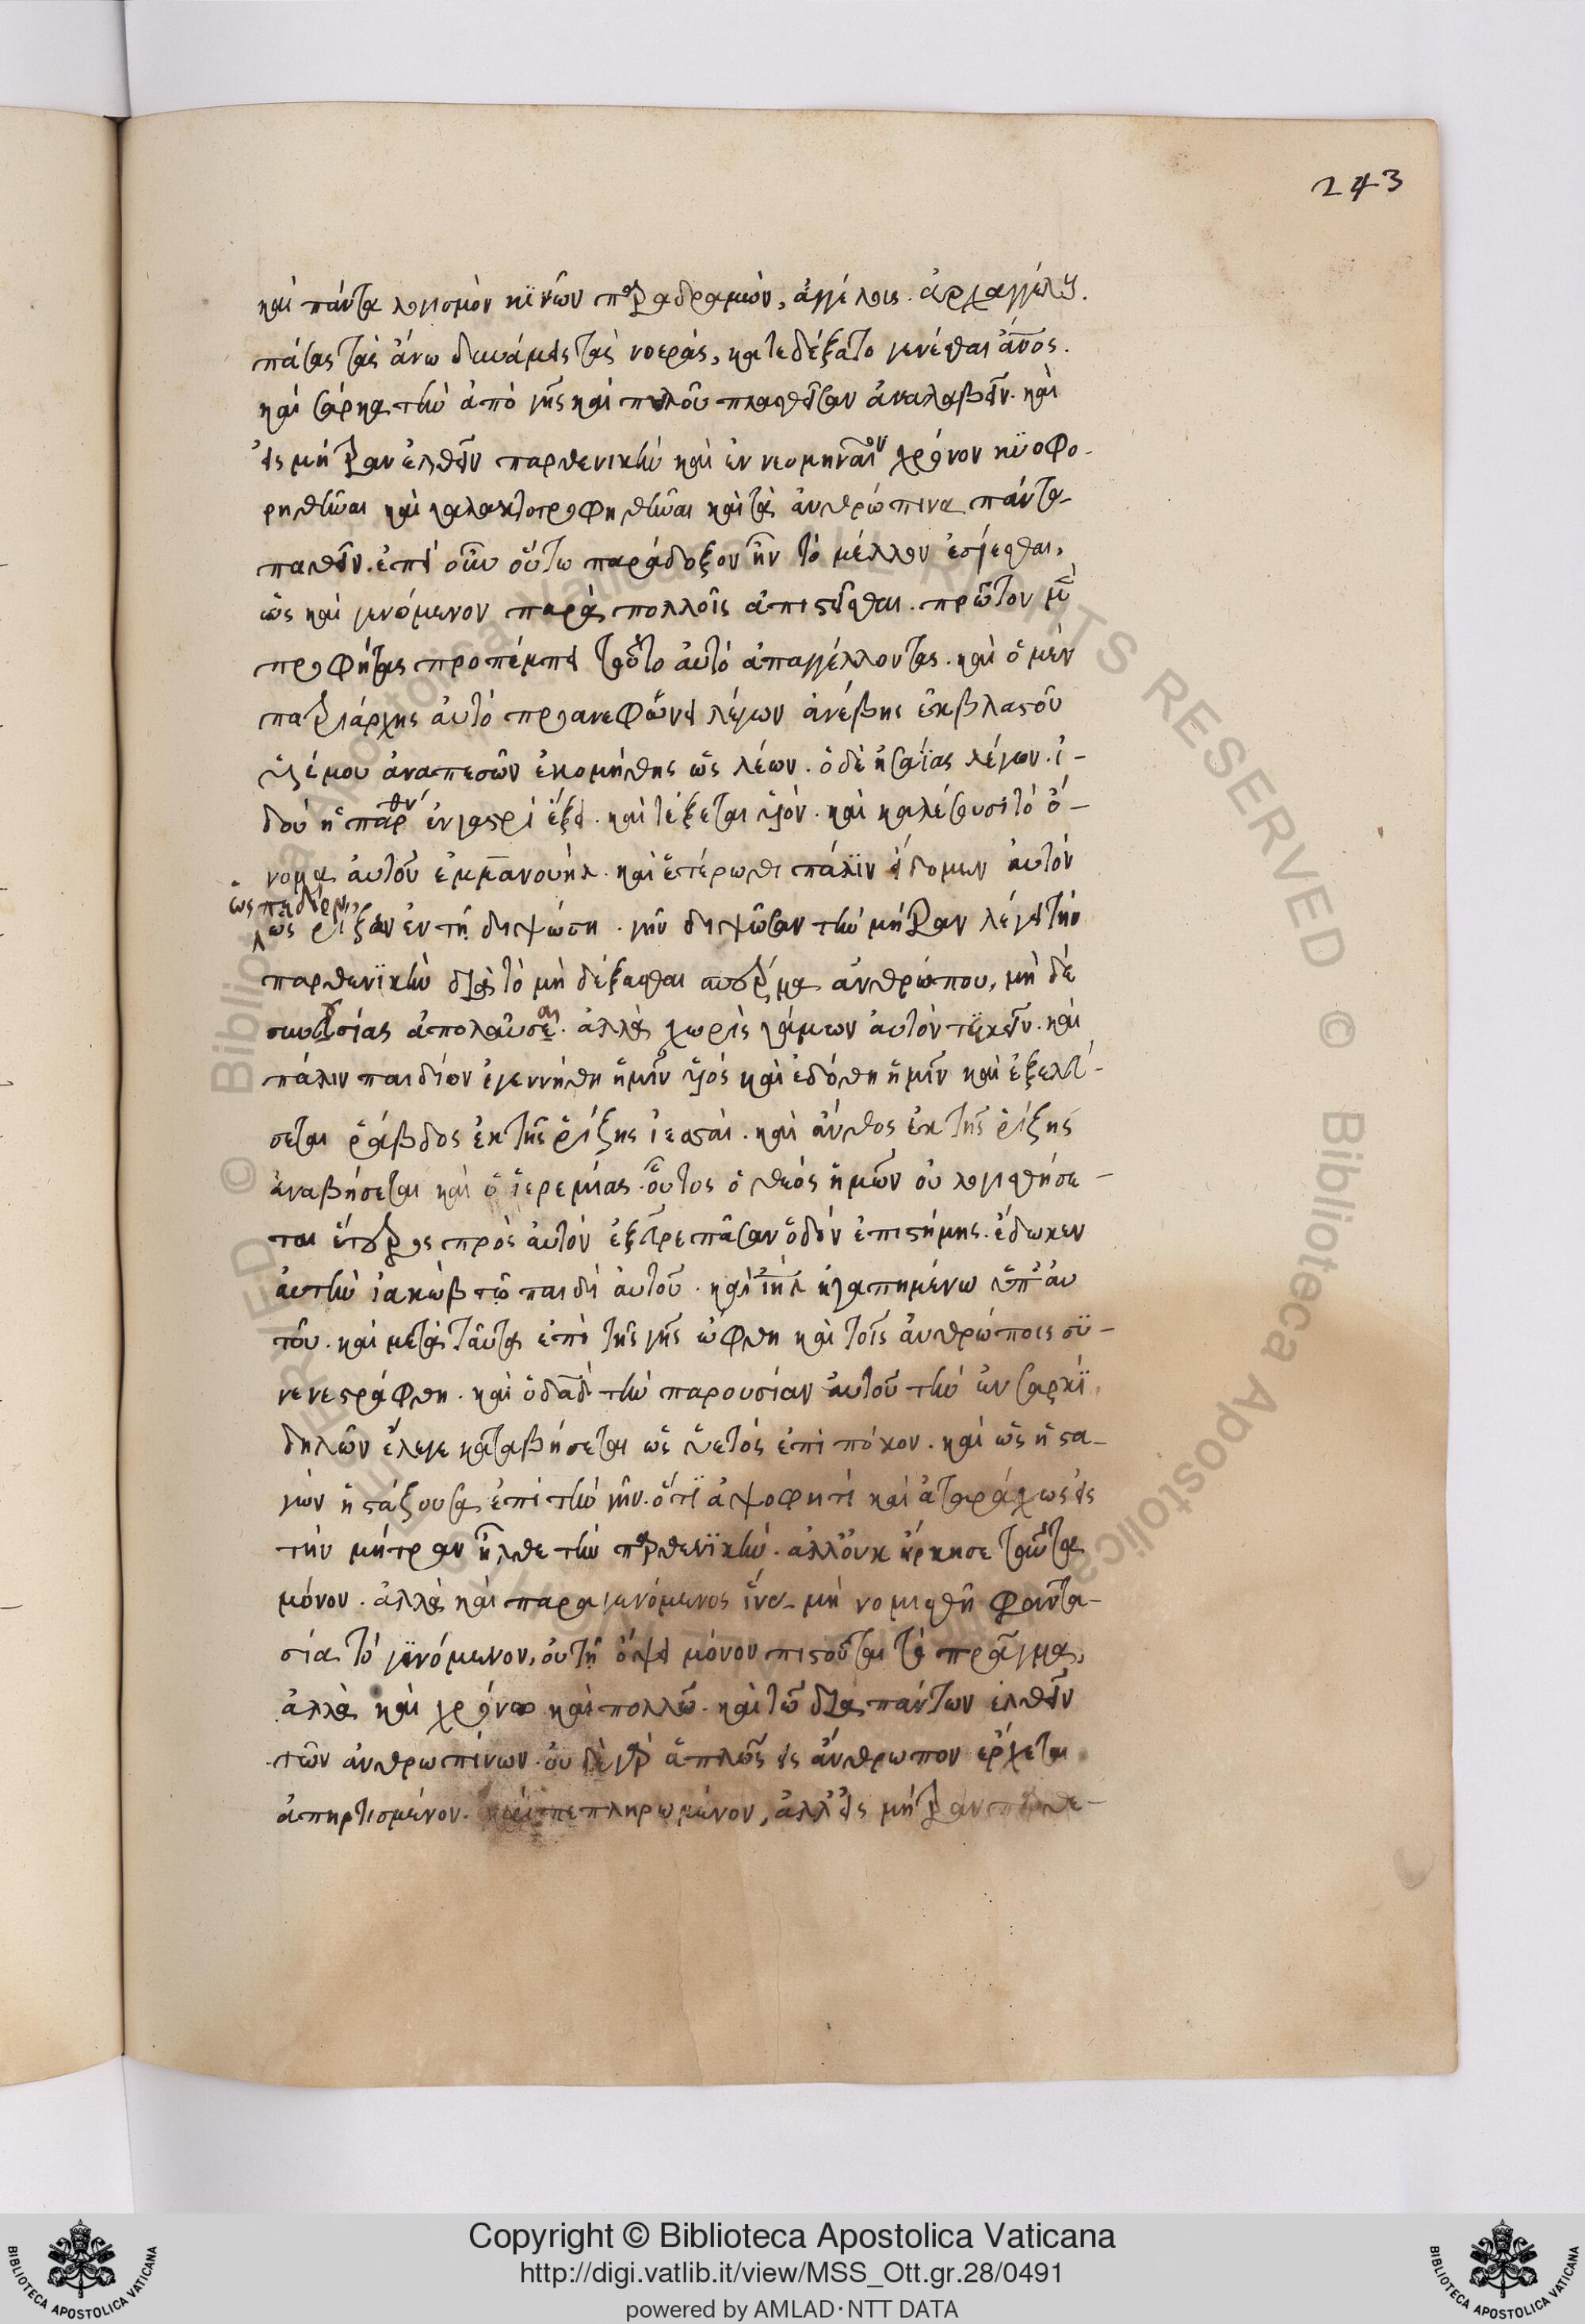 243
καὶ πάντα λογισμὸν κϊνῶν παραδραμὼν, ἀγγέλοις. ἀρχαγγέλους.
πάσας τὰς ἄνω δυνάμεις τὰς νοερὰς, κατεδέξατο γενέσθαι ἄνος.
καὶ σάρκα τὴν ἀπὸ γῆς καὶ πηλοῦ πλασθεῖσαν ἀναλαβεῖν. καὶ
εἰς μήτραν ἐλθεῖν παρθενικὴν καὶ ἐννεομηναῖον χρόνον κϋοφο-
ρηθῆναι καὶ γαλακτοτροφηθῆναι καὶ τὰ ἀνθρώπινα πάντα
παθεῖν. ἐπεὶ οὖν οὕτω παράδοξον ἦν τὸ μέλλον ἔσεσθαι,
ὡς καὶ γενόμενον παρὰ πολλοῖς ἀπιστεῖσθαι. πρῶτον μὲν
προφήτας προπέμπει τοῦτο αὐτὸ ἀπαγγέλλοντας. καὶ ὁ μὲν
πατριάρχης αὐτὸ προανεφώνει λέγων ἀνέβης ἐκ βλαστοῦ
υἱέ μου ἀναπεσὼν ἐκοιμήθης ὡς λέων. ὁ δὲ ἡσαΐας λέγων. ἰ-
δοὺ ἡ παρθν ἐν γαστρὶ ἕξει. καὶ τέξεται υἱόν. καὶ καλέσουσι τὸ ὄ-
νομα αὐτοῦ ἐμμανουήλ. καὶ ἑτέρωθι πάλϊν εἴδομεν αὐτὸν
ὡς παιδίον,
ὡς ῥίζαν ἐν γῇ διψώσῃ. γῆν διψῶσαν τὴν μήτραν λέγει τὴν
παρθενϊκὴν διὰ τὸ μὴ δέξασθαι σπέρμα ἀνθρώπου, μὴ δὲ
συνουσίας ἀπολαῦσαι. ἀλλὰ χωρὶς γάμων αὐτὸν τϋκεῖν. καὶ
πάλιν παιδίον ἐγεννήθη ἡμῖν υἱός καὶ ἐδόθη ἡμῖν καὶ ἐξελεύ-
σεται ῥάβδος ἐκ τῆς ῥίζης ἰεσσαί. καὶ ἄνθος ἐκ τῆς ῥίζης
ἀναβήσεται καὶ ὁ ἱερεμίας. οὗτος ὁ θεός ἡμῶν οὐ λογισθήσε-
ται ἕτερος πρὸς αὐτόν ἐξεῦρε πᾶσαν ὁδὸν ἐπιστήμης. ἔδωκεν
αὐτὴν ἰακὼβ τῷ παιδὶ αὐτοῦ. καὶ ιηλ ἠγαπημένω ὑπ' αὐ
τοῦ. καὶ μετὰ ταῦτα ἐπὶ τῆς γῆς ὤφθη καὶ τοῖς ἀνθρώποις σϋ-
νενεστράφθη. καὶ ὁ δαδ τὴν παρουσίαν αὐτοῦ τὴν ἐν σαρκῒ
δηλῶν ἔλεγε καταβήσεται ὡς ὑετός ἐπὶ πόκον. καὶ ὡς ἡ στα-
γὼν ἡ στάζουσα ἐπὶ τὴν γῆν. ὅτϊ ἀψοφητὶ καὶ ἀταράχως εἰς
τὴν μήτραν ἦλθε τὴν παρθενϊκὴν. ἀλλ' οὐκ ἤρκησε ταῦτα
μόνον. ἀλλὰ καὶ παραγενόμενος ἵνα μὴ νομισθῇ φαντα-
σία τὸ γϊνόμενον, οὐ τῇ ὄψει μόνον πιστοῦται τὸ πρᾶγμα,
ἀλλὰ καὶ χρόνω καὶ πολλῶ. καὶ τῶ διὰ πάντων ἐλθεῖν
τῶν ἀνθρωπίνων. οὐδὲ γὰρ ἁπλῶς εἰς ἄνθρωπον ἔρχεται
ἀπηρτισμένον. καὶ πεπληρωμένον, ἀλλ' εἰς μήτραν παρθε-
Copyright © Biblioteca Apostolica Vaticana
http://digi.vatlib.it/view/MSS_Ott.gr.28/0491
powered by AMLAD·NTT DATA